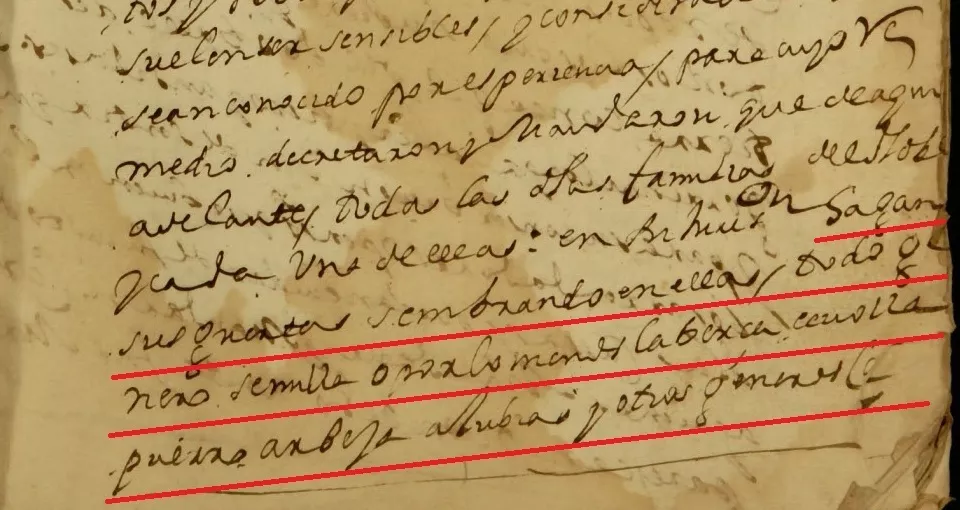 suelen ser sensibles / y considera
sean conocido por esperiencia / para cuyo Re
medio decretaron y Mandaron que de aqui
adelante / todas las dhas familias
y cada Una de ellas en
On hagan
sus guertas sembrando en ellas / todo ge
nero semilla o por lo menos la berza cevolla
puerro arbeja alubias y otros generos